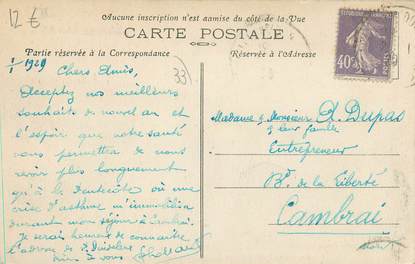 12 €
Aucune inscription n'est admise du côté de la Vue
CARTE POSTALE
Partie réservée à la Correspondance
Réservée à l'Adresse
40c
1/1 1929
33
Chers Amis,
Acceptez nos meilleurs
souhaits de nouvel an et
l'espoir que notre santé
nous permettra de nous
revoir plus longuement
qu'à la Pentecôte où une
crise d'asthme m'immobilisa
durant mon séjour à Cambrai.
Je serais heureux de connaître
l'adresse de
à vous
Madame & Monsieur A. Dupas
& leur famille
Entrepreneur
Bd. de la Liberté
Cambrai